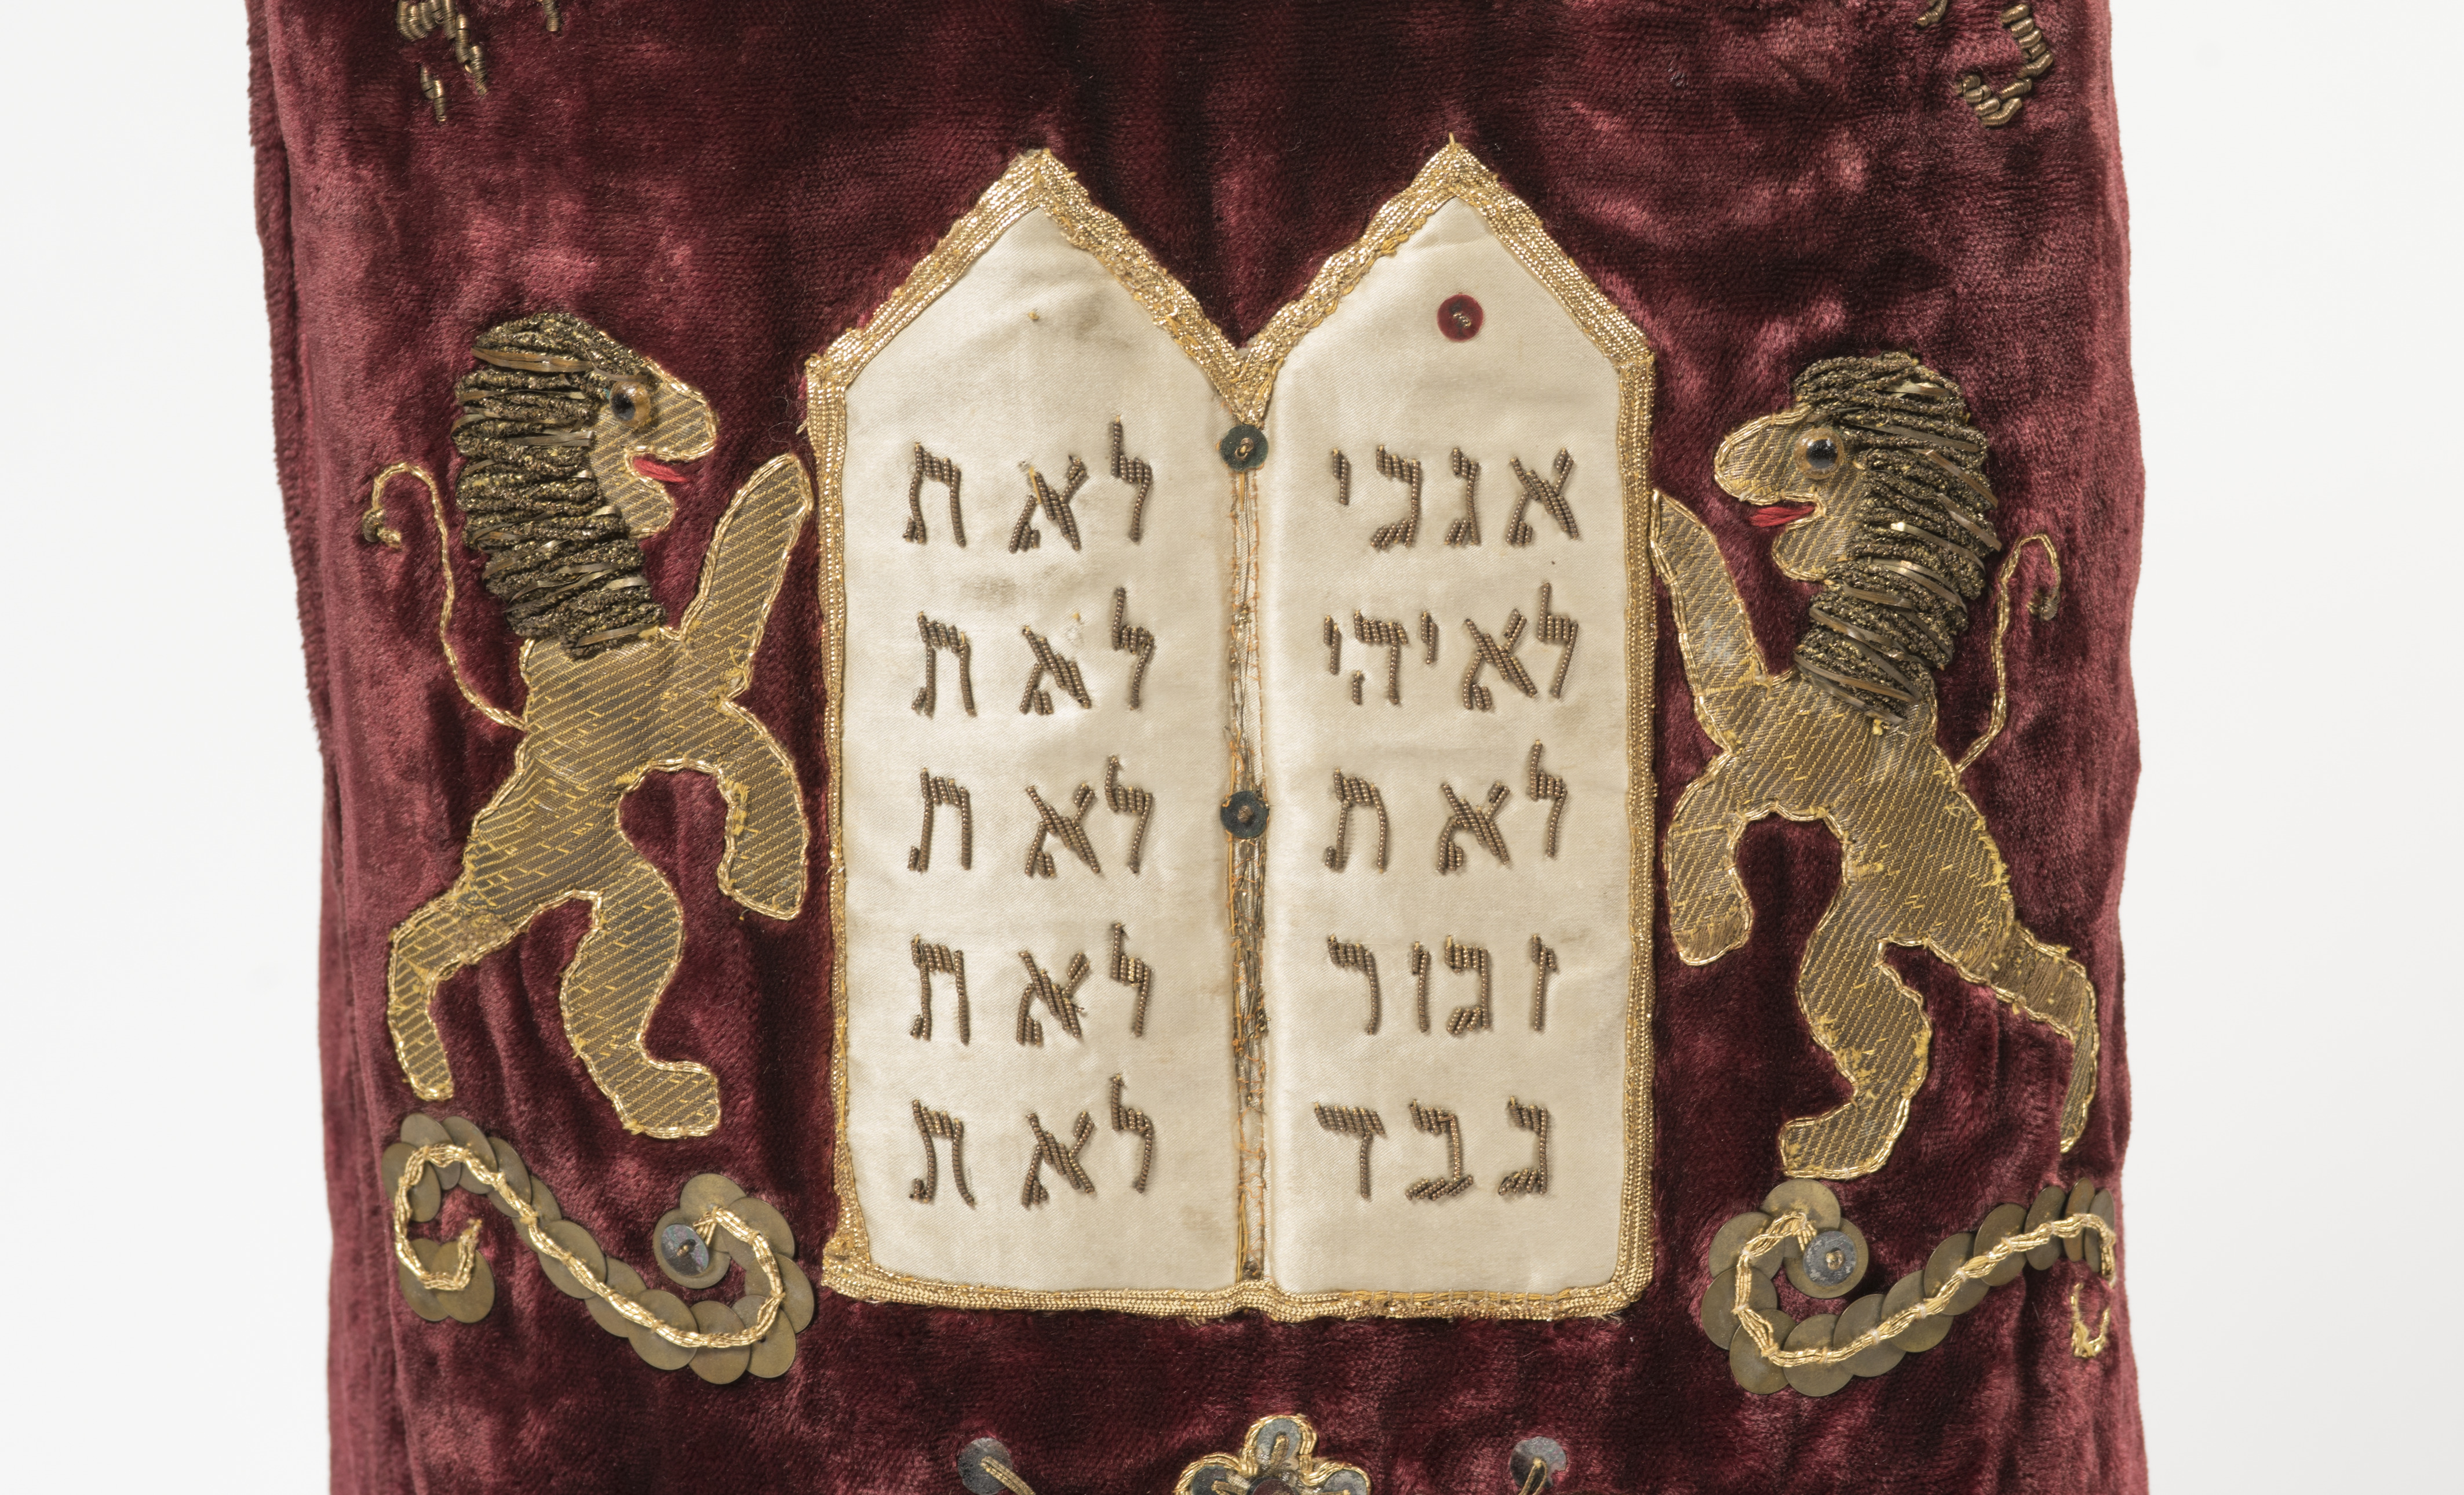 אנכי
לא יהי
לא ת
זכור
כבד
לא ת
לא ת
לא ת
לא ת
לא ת